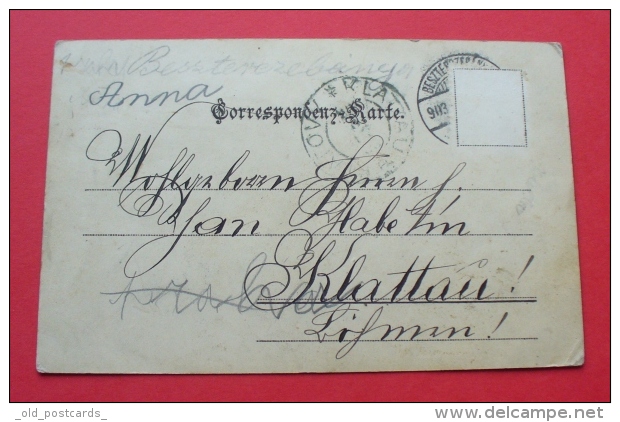 Beszterczebánya
Anna
Correspondenz-Karte.
KLATTAU
BESZTERCZEBÁNYA
903
Wohlgeboren Herrn
Jan Habetín
Klattau!
Böhmen!
_old_postcards_
delcampe.net